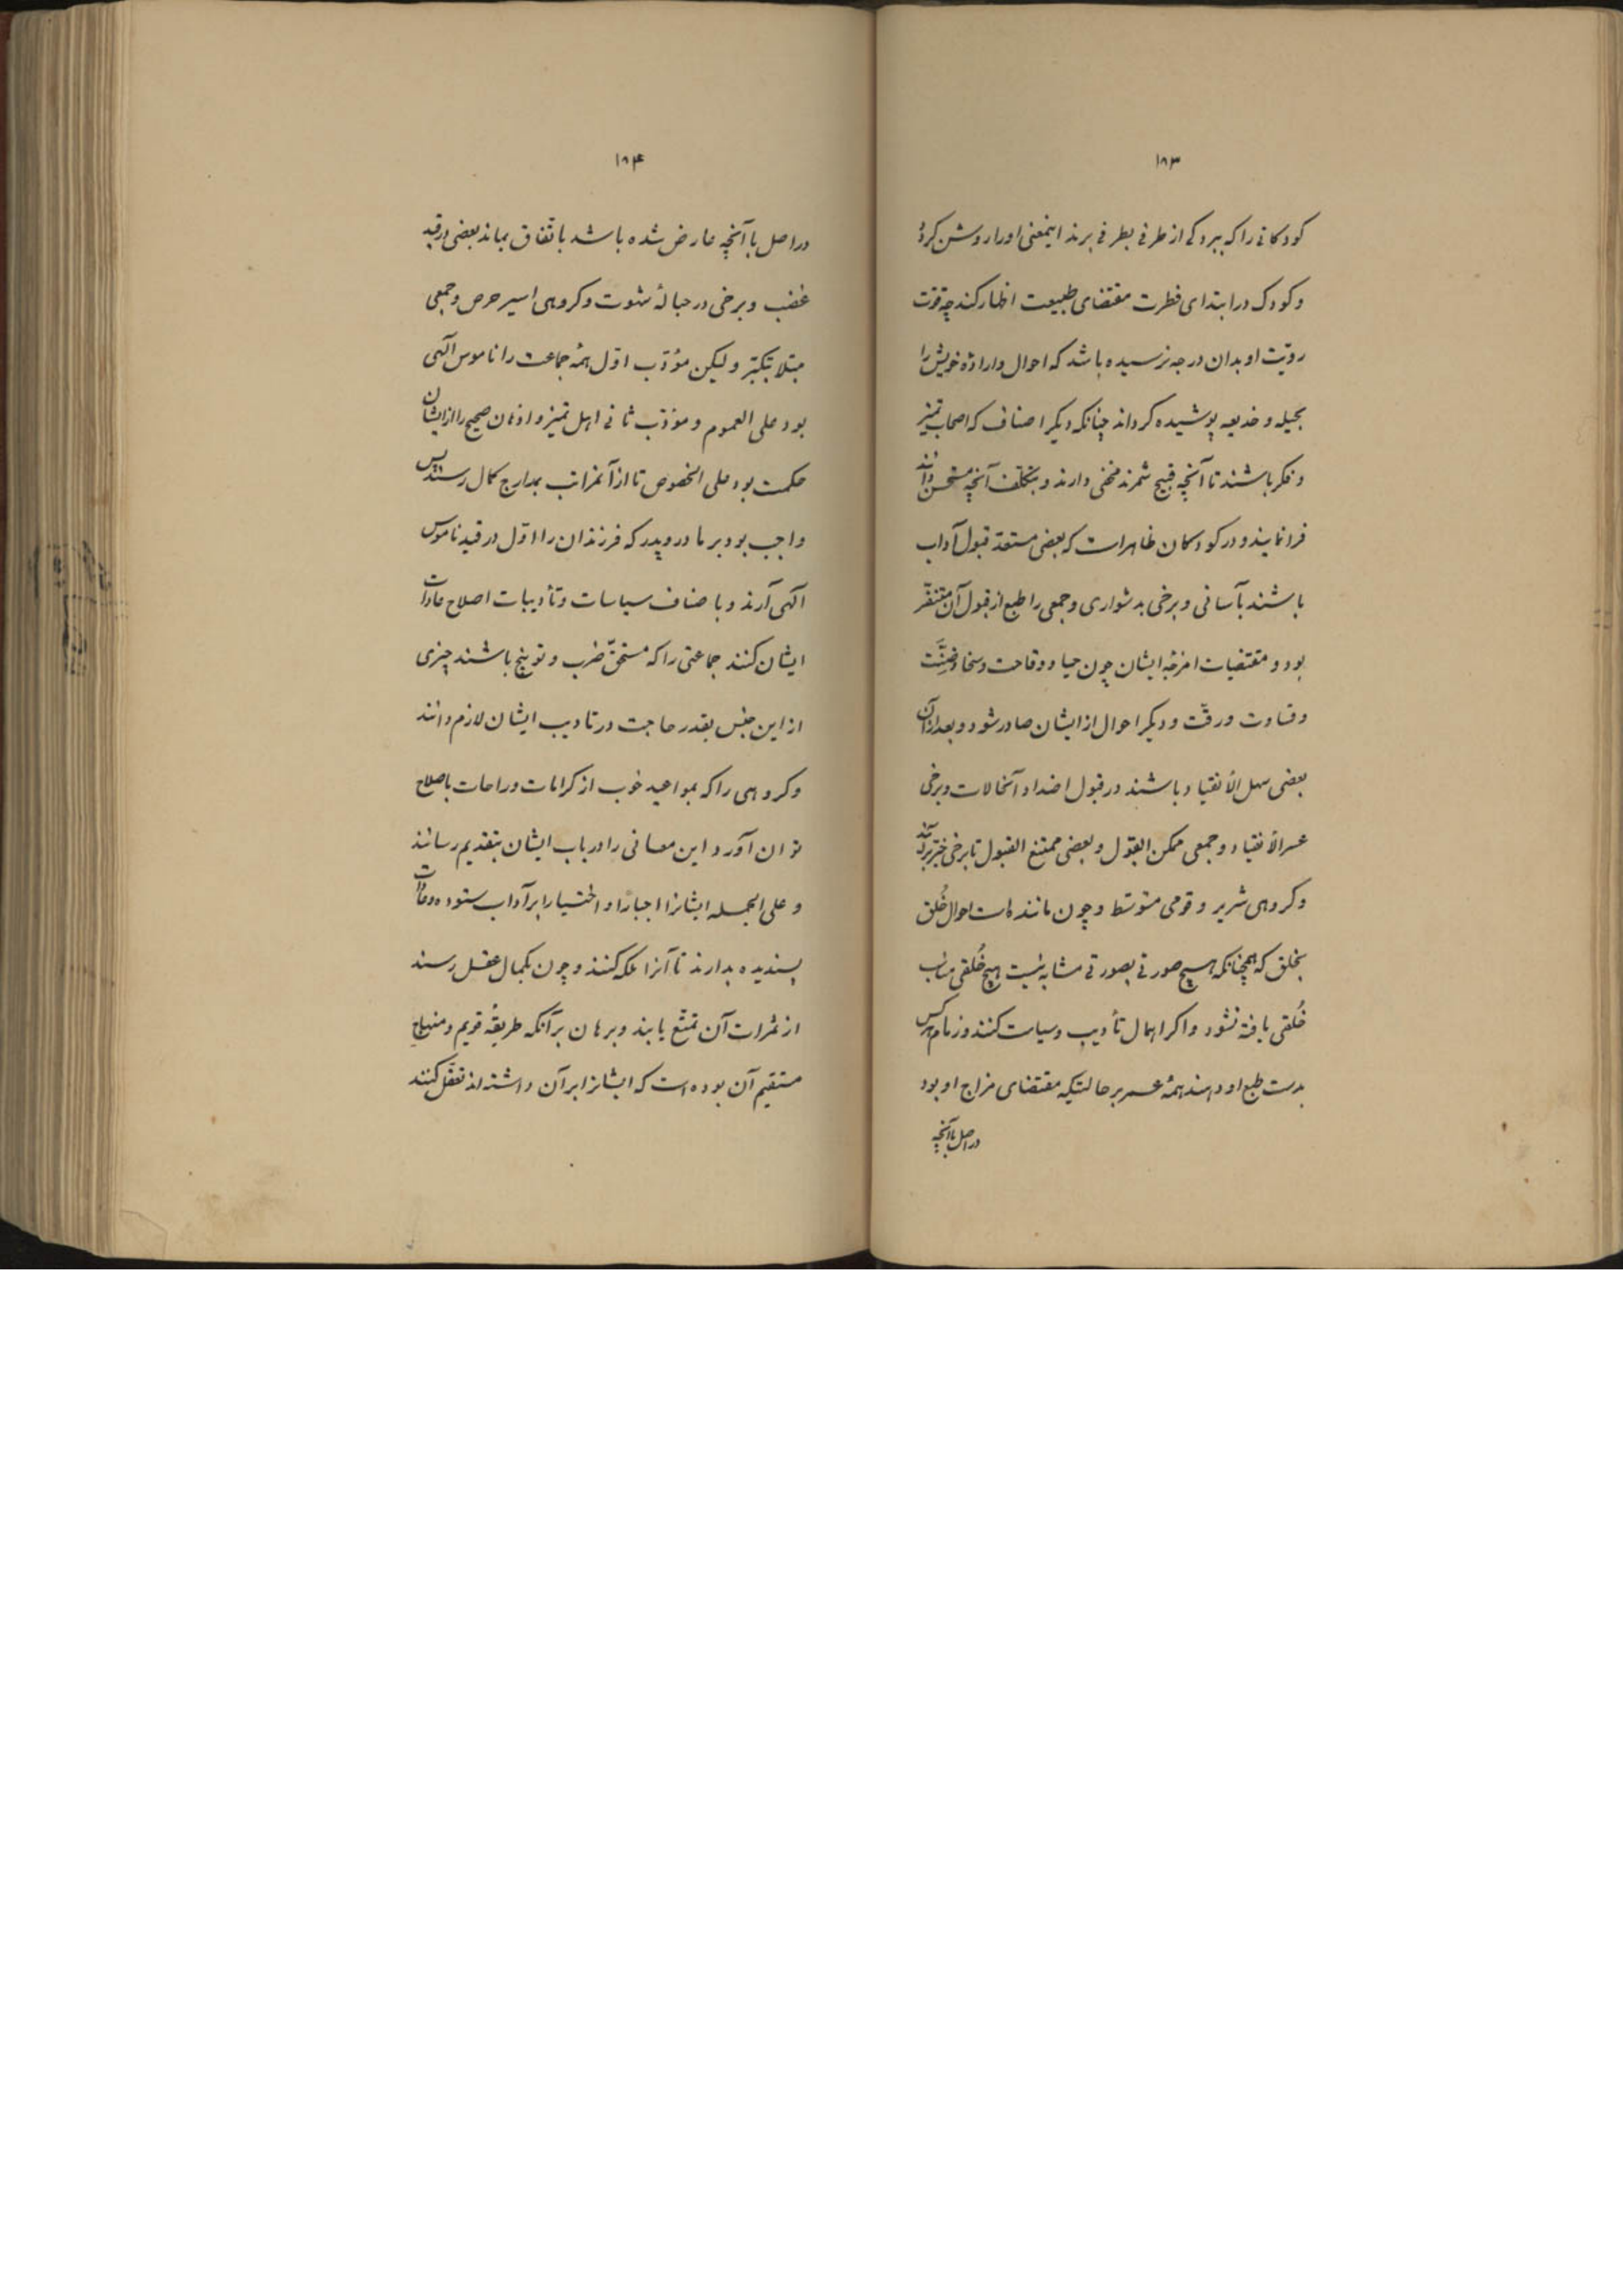 ۱۸۳
کودکانی را که ببردگی از طرفی بطرفی برند اینمعنی او را روشن گردد
و کودک در ابتدای فطرت مقتضای طبیعت اظهار کند چه قوّت
رویّت او بدان درجه نرسیده باشد که احوال و ارادهٔ خویش را
بحیله و خدیعه پوشیده گرداند چنانکه دیگر اصناف که اصحاب تمیز
و فکر باشند تا آنچه قبیح شمرند مخفی دارند و بتکلّف آنچه مستحسن دانند
فرا نمایند و در کودکان ظاهر است که بعضی مستعدّ قبول آداب
باشند بآسانی و برخی بدشواری و جمعی را طبع از قبول آن متنفّر
بود و مقتضیات امزجهٔ ایشان چون حیا و وقاحت و سخا و ضِنَّت
و قساوت و رقّت و دیگر احوال از ایشان صادر شود و بعد از آن
بعضی سهل الأنقیاد باشند در قبول اضداد آنحالات و برخی
عسر الأنقیاد و جمعی ممکن القبول و بعضی ممتنع القبول تا برخی خیّر برآیند
و گروهی شریر و قومی متوسّط و چون ماننده است احوال خُلق
بخلق که همچنانکه هیچ صورتی بصورتی مشابه نیست هیچ خُلقی مناسب
خُلقی یافته نشود و اگر اهمال تأدیب و سیاست کنند و زمام هرکس
بدست طبع او دهند همهٔ عمر بر حالتیکه مقتضای مزاج او بود
در اصل یا آنچه
۱۸۴
در اصل یا آنچه عارض شده باشد باتفاق بماند بعضی در قید
غضب و برخی در حبالهٔ شهوت و گروهی اسیر حرص و جمعی
مبتلا بتکبّر و لیکن مؤدّب اوّل همهٔ جماعت را ناموس آلهی
بود علی العموم و مؤدّب ثانی اهل تمیز و اذهان صحیح را از ایشان
حکمت بود علی الخصوص تا از آنمراتب بمدارج کمال رسند پس
واجب بود بر مادر و پدر که فرزندان را اوّل در قید ناموس
آلهی آرند و باصناف سیاسات و تأدیبات اصلاح عادات
ایشان کنند جماعتی را که مستحقّ ضرب و توبیخ باشند چیزی
از این جنس بقدر حاجت در تادیب ایشان لازم دانند
و گروهی را که بمواعید خوب از کرامات و راحات باصلاح
توان آورد این معانی را در باب ایشان بتقدیم رسانند
و علی الجمله ایشانرا اجباراً او اختیاراً بر آداب ستوده و عادات
پسندیده بدارند تا آنرا ملکه کنند و چون بکمال عقل رسند
از ثمرات آن تمتّع یابند و برهان بر آنکه طریقهٔ قویم و منهاج
مستقیم آن بوده است که ایشانرا بر آن داشته اند تعقّل کنند